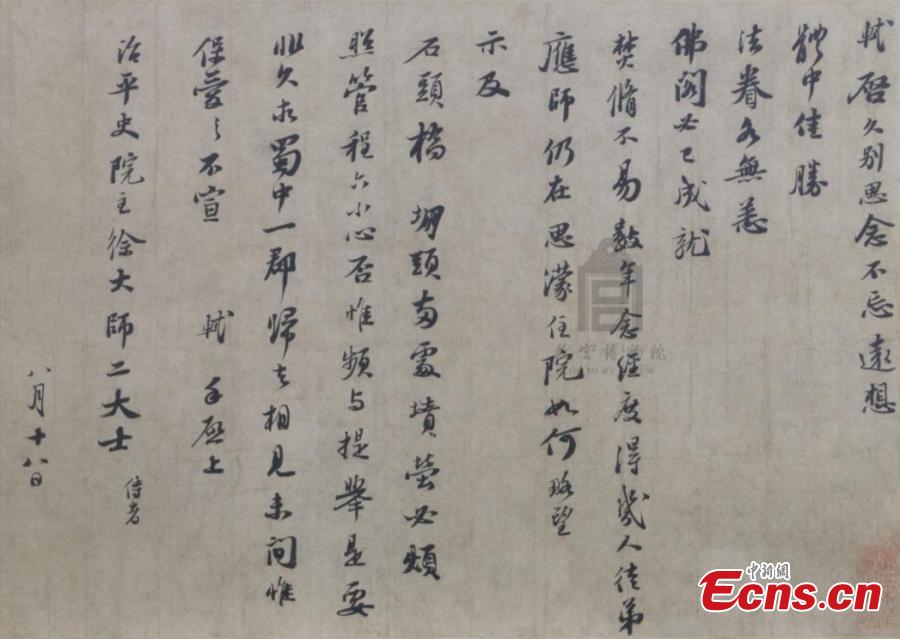 軾启久别思念不忘遠想
體中佳勝
法眷各無恙
佛閣必已成就
焚脩不易數年念經度得幾人徒弟
應師仍在思濛住院如何略望
示及
石頭橋 堋頭兩處墳塋必煩
照管程六小心否惟頻与提舉是要
非久求蜀中一郡歸去相見未間惟
保愛之不宣 軾 手啓上
治平史院主徐大師二大士 侍者
八月十八日
宫博物院
THE PALACE MUSEUM
中新網
Ecns.cn